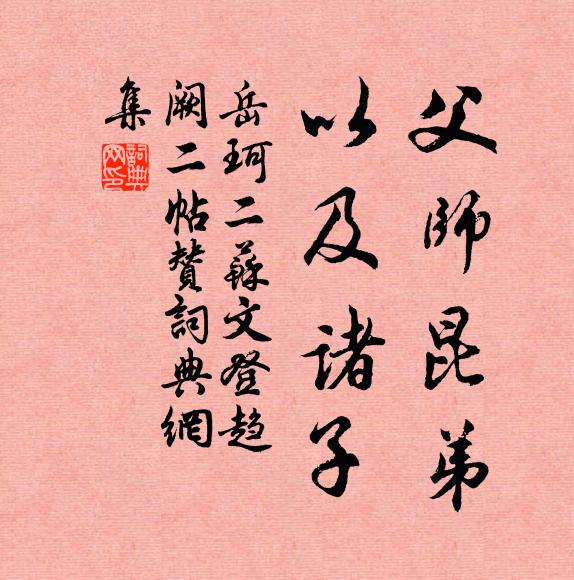 父師昆弟
以及諸子
岳珂二蘇文登趨
闕二帖贊詞典網
集
詞典網印